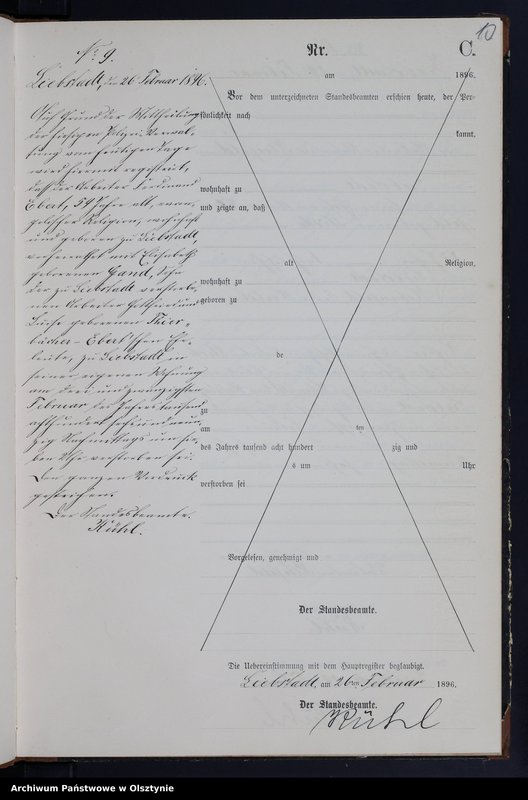 10
No 9.
Nr. C.
Liebstadt, den 26 Februar 1896.
am 1896.
Vor dem unterzeichneten Standesbeamten erschien heute, der Per-
sönlichkeit nach
kannt,
wohnhaft zu
und zeigte an, daß
alt Religion,
wohnhaft zu
geboren zu
de
zu
am ten
des Jahres tausend acht hundert zig und
s um Uhr
verstorben sei
Vorgelesen, genehmigt und
Der Standesbeamte.
Auf Grund der Mittheilung
der hiesigen Polizei-Verwal-
tung vom heutigen Tage
wird hiermit registrirt,
daß der Arbeiter Ferdinand
Ebert, 54 Jahre alt, evan-
gelischer Religion, wohnhaft
und geboren zu Liebstadt,
verheirathet mit Elisabeth
geborenen Gand, Sohn
der zu Liebstadt verstorbe-
nen Arbeiter Gottfried und
Luise geborenen
Ebert'schen Ehe-
leute, zu Liebstadt in
seiner eigenen Wohnung
am drei und zwanzigsten
Februar des Jahres tausend
achthundert sechs und neun-
zig Nachmittags um sie-
ben Uhr verstorben sei.
Den ganzen Vordruck
gestrichen.
Der Standesbeamte.
Kühl.
Die Uebereinstimmung mit dem Hauptregister beglaubigt.
Liebstadt, am 26ten Februar 1896.
Der Standesbeamte.
Kühl
Archiwum Państwowe w Olsztynie